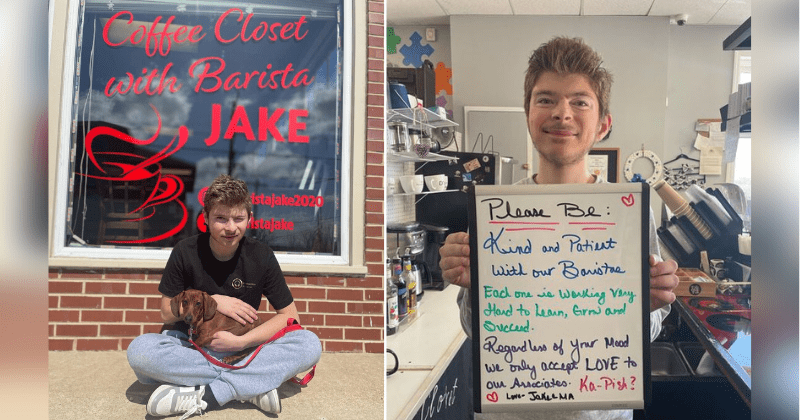 Coffee Closet
with Barista
JAKE
istajake2020
istajake
Please Be:
Kind and Patient
with our Baristas
Each one is Working Very
Hard to Learn, Grow and
Succeed.
Regardless of Your Mood
we only accept LOVE to
our Associates. Ka-Pish?
Love- Jake & MA
Closet